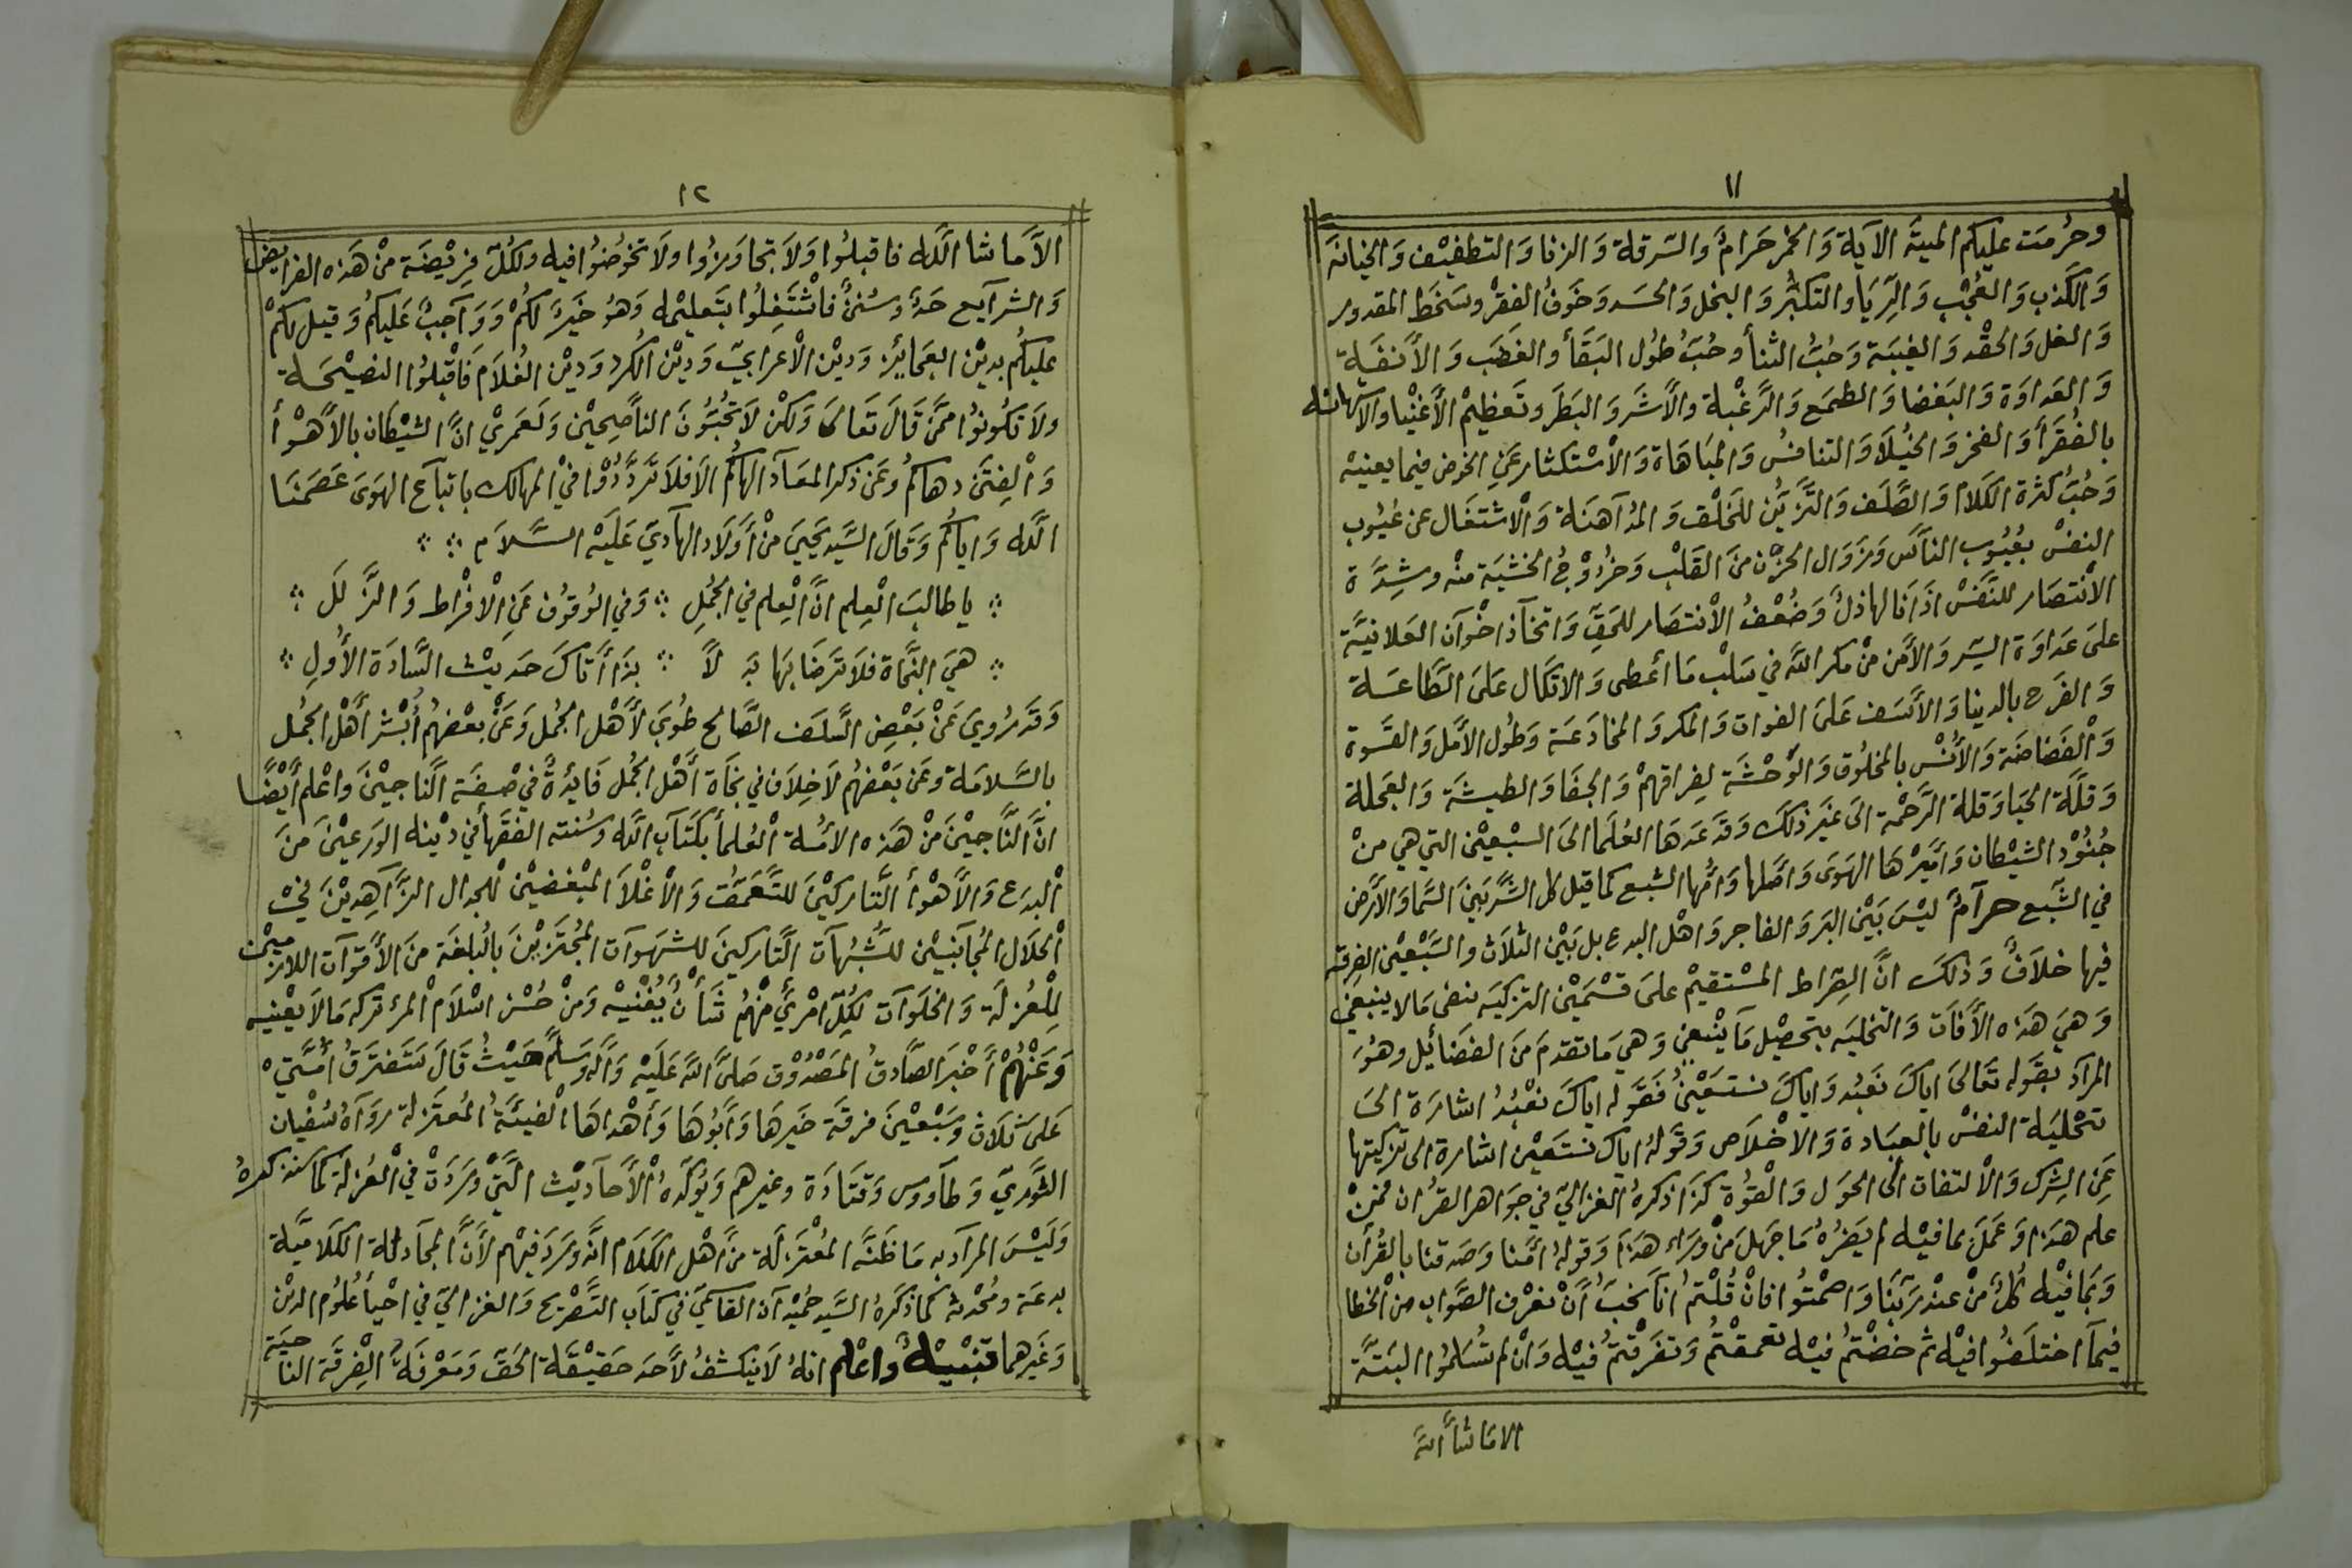 ١١
وحُرِّمَت عليكم الميتَة الآيَة وَالخمر حَرَامٌ والسّرقة وَالزنا وَالتطفيْف وَالخيانَة
وَالكَذِب وَالعُجْب وَالرِّيَا والتكبُّر وَالبخل وَالحسَد وَخَوفُ الفقرْ وسَخَط المقدور
وَالغل وَالحقْد وَالغيبَة وَحُبُّ الثنأ وحُبُّ طُول البَقَأ والغضَب وَالأَنفَة
وَالعدَاوَة وَالبَغضا وَالطمَع وَالرَّغْبة والأشَر وَالبَطَر وتَعظيمْ الأَغنْيا والاسْتهانَه
بالفُقَرَأ وَالفخر وَالخُيلَا وَالتنافسُ وَالمبَاهَاة وَالأسْتكثار عَنِ الخوض فيما يعنيه
وَحُبُّ كثرة الكَلام وَالصَّلَف وَالتَّزَيّن للخَلْق وَالمُدَآهنَة وَالْاشتغَال عن عُيُوب
النفسْ بعُيُوب النآس وَزوَال الحزْن منَ القَلْب وَخرُوْجُ الخشيَة منْه وشِدَّة
الانْتصَار للنَّفسْ اذَا نَالها ذلٌ وَضُعْفُ الأنتصَار للحَقِّ وَاتخآذ اخْوَآن العَلانيَّة
علىَ عَداوَة السّر وَالأَمن منْ مكر اللَّه في سَلْب مَا أعطى وَالاتكَال عَلىَ الطَّاعَة
وَالفَرح بالدينا وَالأَسَف عَلىَ الفوات وَالمكر وَالمخَادَعَة وَطُول الأَمَل وَالقسَوة
وَالْفضَاضَة وَالأُنْس بالمخلُوق وَالوَحْشَة لفِراقهمْ وَالجفَا وَالطيشَة وَالعَجلة
وَقلَّة الحيَا وَقلة الرَّحْمة الىَ غيَر ذلكَ وَقدَ عَدهَا العُلَما الىَ السبْعيْن التي هي منْ
جُنُوْد الشيْطان وَأَميْرهَا الهَوَى وَأَصْلها وَأُمّها الشبع كما قيل كل الشَّر بَيْنَ السَّما وَالأَرض
في الشَّبع حرآمٌ ليْسَ بَيْن البرَ وَالفاجر وَاهْل البدع بل بَيْن الثلَاث والسَّبْعيْن الفِرقَه
فيها خلَافٌ وَذلكَ انَّ الصّرَاط المسْتقيْم علىَ قسْمَيْن التزكيَه بنفى مَالا ينبغي
وَهيَ هَذه الأَفات وَالتخليَه بتحصْيل مَآينْبغي وَهي مَاتقدمَ منَ الفضَائل وهوُ
المرَادَ بقَوله تَعَالىَ اياكَ نَعبُد وَاياكَ نستَعيْنُ فقَوَله اياكَ نعْبُدُ اشارَة الىَ
تحْليَة النفسْ بالعبَادة وَالاخْلَاص وَقَولهُ اياكَ نستَعيْن اشارة الى تزكيتها
عَنِ الشِرك وَالْالتفات الىَ الحوَل وَالْقوُة كذَا ذكرهُ الغزاليّ في جوَاهر القرُان فمَنْ
علم هذَا وَعَملَ بما فيْه لم يَضرُهُ مَاجَهلَ منْ ورَاء هذَا وَقولهُ امَّنا وَصَدقنا بالقُرآن
وَبمَا فيْه كُلٌّ منْ عنْد رَبّنَا وَاصْمتُوا فانْ قُلْتمُ انا نحَبُّ أَنْ نعْرف الصَّوَاب منْ الخطَا
فيْمآ اختلَفوُا فيْه ثم خضْتمُ فيْه تعمقْتمُ وَتفَرقْتمُ فيْه وَانْ لم تُسَلموُا البَتَّة
الامَا شأَ اللهُ
١٢
الأَما شا اللَّه فاقبلُوا وَلَا تجاوَزُوا ولَا تخوُضُوا فيه ولكُلّ فرِيْضَة منْ هَذه الفرايض
وَالشرآيع حَدٌ وسُننٌ فاشْتغِلُوا بتَعليْمه وَهوُ خيَرٌ لكُمْ وَوَآجبٌ عَليكُم وَقيل لكُمْ
عليكُم بديْن العجَايْز وَديْن الْأعرَابيّ وَديْن الكُرد وَديْن الغُلَام فَاقْبلُوا النصيْحَة
ولَا تكُونوُا ممَّن قَالَ تَعَالىَ وَلكنْ لَا تُحبّوُنَ الناصِحيْن وَلَعَمريْ انَّ الشيْطان بالأَهْوأ
وَالْفِتَن دهاكُم وَعَن ذكر المعَآد الهاكُم الَا فلَا تَردَّدُوْا فيْ المهَالك باتباَع الهَوَى عَصَمنَا
اللَّه وَاياكُم وَقَالَ السَّيد يَحيىَ منْ أَوَلَاد الهآديَ عَلَيْه السَّلَام
ياطالبَ الْعِلم انَّ الْعِلم في الجُملِ وَفي الوُقوُف عَنِ الْافْرَاط وَالزَّلَل
هيَ النَّجَاة فلَا ترَضَا بهَا بَدَ لَاً بذَا أَتاكَ حَديْث السَّادَة الأُوَلِ
وَقدَ رُويَ عَنْ بَعْض السَّلَف الصَّالح طوُبيَ لأَهْل الجُمل وَعَنْ بعْضهُم أَبشْر أَهْل الجُمل
بالسَّلامَة وعَن بَعْضهُم لَا خِلَاف في نجَاة أَهْل الجُمل فَايدُةٌ في صْفَة النَّاجيْنَ وَاعْلم أَيْضًا
انَّ النَّاجيْنَ منْ هَذه الأمَّة الْعُلمأ بكتَآب اللَّه وَسُنته الفقَهأ في ديْنه الوَرعيْنَ منَ
الْبدَع وَالأَهْوأ التَّاركيْنَ للتَّعَمقُّ وَالْأغْلَا المبْغضيْن للجدَال الزَّاهِديْنَ فيْ
الْحلَال المُجَآنبيْن للشُّبُهَات التَّاركينَ للشهَوات المجُتَزيْنَ بالبُلغَة منَ الأَقوَات اللازميْن
لِلْعُزلَة وَالخلَوات لكُلّ امْرئٍ منْهُم شَأْنٌ يُغْنيْه وَمنْ حُسْن اسْلَام الْمرء تركه مَالاَ يَعْنيه
وَعَنْهُمْ أَخْبرَ الصَّادقُ المَصْدُوْق صَلىَ اللهُ عَلَيْه وَآله وَسَلم حَيْثُ قَالَ سَتَفترَقُ أُمَّتيْ
عَلىَ ثلَاث وَسَبْعيْنَ فرقَة خَيرهَا وَأَبرُهَا وَأَهْداهَا الْفيئَةُ المُعتَزلة رَوَآهُ سُفْيان
الثَّوريّ وَطَآووس وَقتَادَة وغيرهم وَيُؤكّدهُ الْأَحآديْث الَّتيْ وَرَدَتْ في الْعُزلَة كما سَنذكرهُ
وَلَيْسَ المرَاد به مَا ظَنَّه المُعْتَزلَة منْ أَهْل الكَلَام انَّهُ وَرَدَ فيْهْم لأَنَّ المجَآدلة الكَلَاميَّة
بدعَة ومُحْدثَة كَما ذكَرهُ السَّيد حُمَيْدَان القاسميّ في كتَاب التَّصْريح وَالغزاليّ في احْيأ عُلُوم الديْن
وَغَيرهما تنبْيْهٌ وَاعْلم انهُ لَا يَنكشفُ لأَحَد حَقيْقَة الحَقّ وَمَعْرفَةُ الْفِرقَة الناجيَة